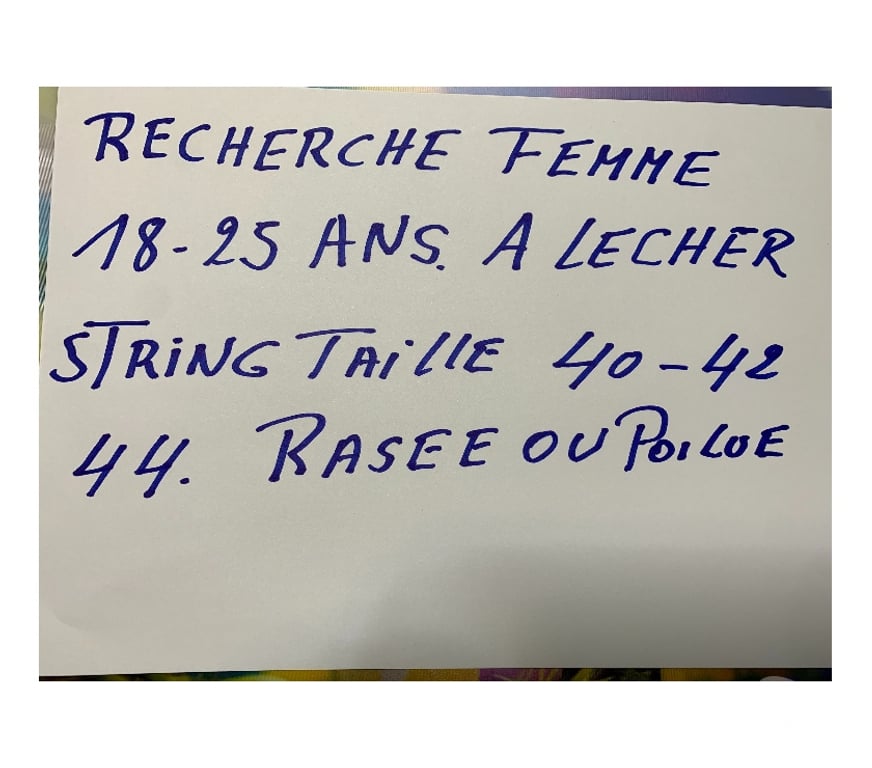 RECHERCHE FEMME
18-25 ANS. A LECHER
STRING TAILLE 40-42
44. RASEE OU POILUE